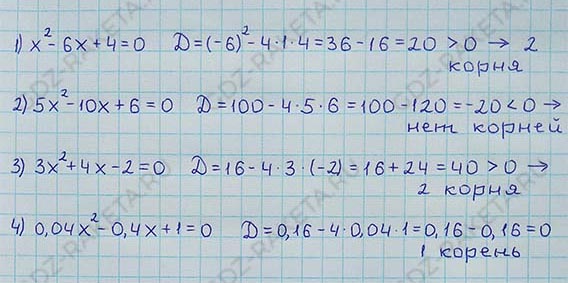 1) x² - 6x + 4 = 0 D = (-6)² - 4·1·4 = 36 - 16 = 20 > 0 → 2
корня
2) 5x² - 10x + 6 = 0 D = 100 - 4·5·6 = 100 - 120 = -20 < 0 →
нет корней
3) 3x² + 4x - 2 = 0 D = 16 - 4·3·(-2) = 16 + 24 = 40 > 0 →
2 корня
4) 0,04x² - 0,4x + 1 = 0 D = 0,16 - 4·0,04·1 = 0,16 - 0,16 = 0
1 корень